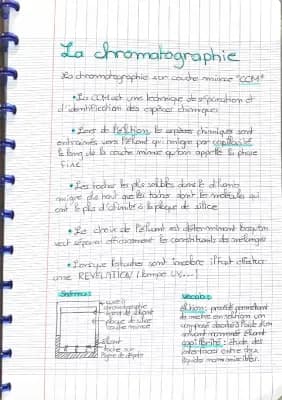 La chromatographie
La chromatographie sur couche mince "CCM"
• La CCM est une technique de séparation et
d'identification des espèces chimiques
• Lors de l'élution, les espèces chimiques sont
entraînés vers l'éluant qui migre par capillarité
le long de la couche mince qu'on appelle la phase
fixe
• Les taches les plus solubles dans le diluant
migre plus haut que les taches dont les molécules qui
ont le plus d'affinité à la plaque de silice
• Le choix de l'éluant est déterminant lorsqu'on
veut séparer efficacement les constituants des mélanges
• Lorsque l'tache sont incolore il faut effectuer
une REVELATION (lampe UV,...)
Schéma :
cuve à
chromatographie
front de l'éluant
plaque de silice
couche mince
éluant
tache sur
ligne de dépôt
Vocab :
élution : procédé permettant
de mettre en solution un
composé absorbé à l'aide d'un
solvant nommé éluant
capillarité : étude des
interfaces entre deux
liquides non miscibles.